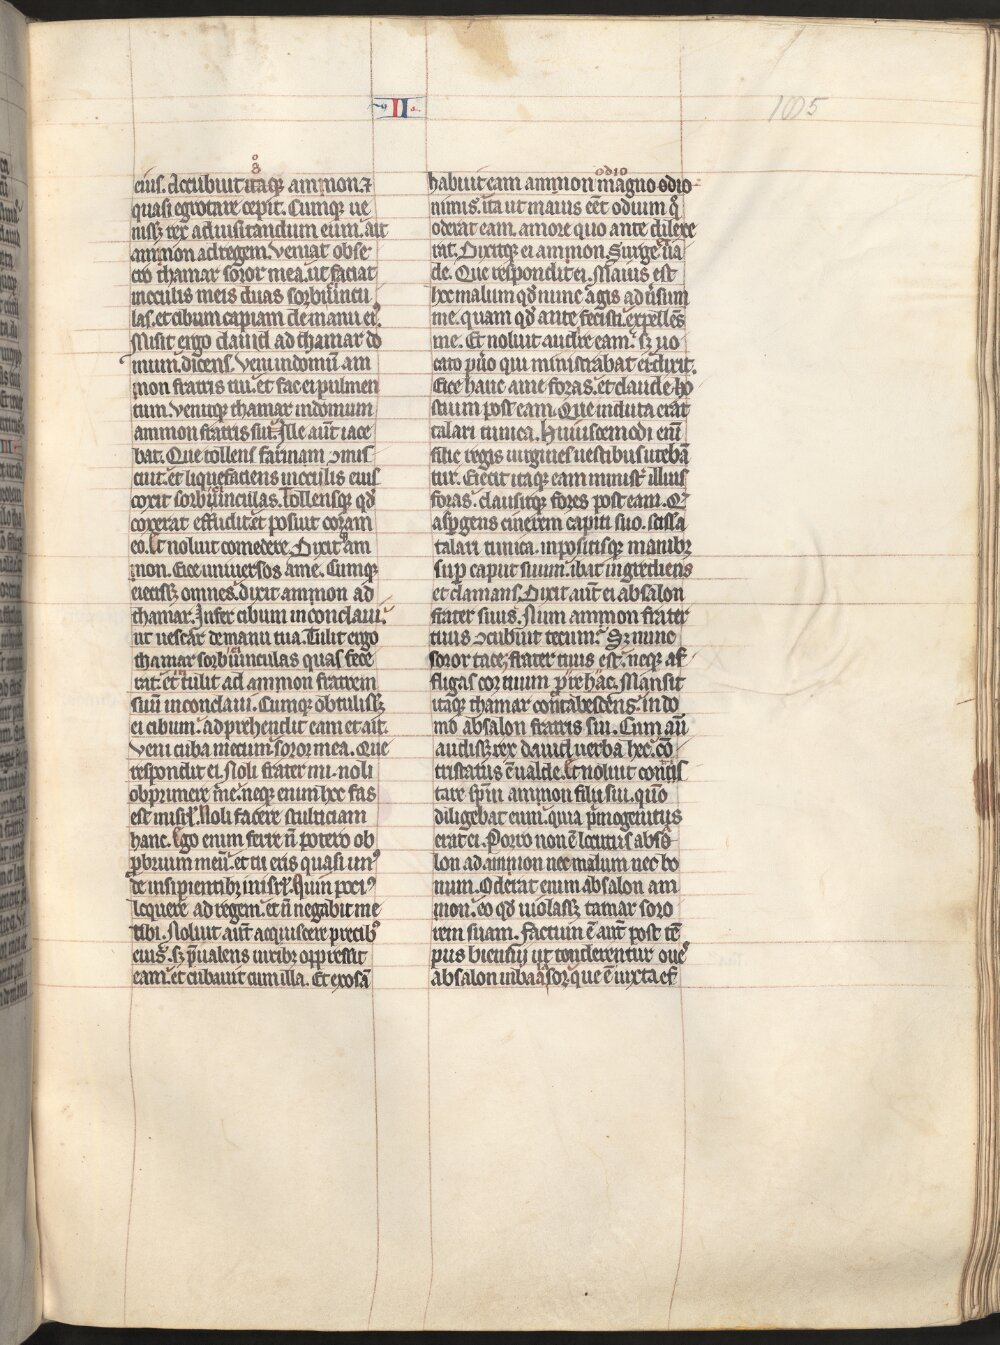 II
105
eius. Accubuit itaqꝫ ammon. ⁊
quasi egrotare cepit. Cumqꝫ ue
nissꝫ rex ad uisitandum eum. ait
ammon ad regem. Veniat obse
cro thamar soror mea. ut faciat
in oculis meis duas sorbiuncu
las. et cibum capiam de manu eiꝰ.
Misit ergo dauid ad thamar do
mum. dicens. Veni in domū am
mon fratris tui. et fac ei pulmen
tum. Venitqꝫ thamar in domum
ammon fratris sui. Ille aūt iace
bat. Que tollens farinam ꝯmis
cuit. et liquefaciens in oculis eius
coxit sorbiunculas. Tollensqꝫ qđ
coxerat effudit. et posuit coram
eo. Et noluit comedere. Dixit am
mon. Eice uniuersos a me. Cumqꝫ
eiecissꝫ omnes. dixit ammon ad
thamar. Infer cibum in conclaui.
ut uescar de manu tua. Tulit ergo
thamar sorbiunculas quas fece
rat. et tulit ad ammon fratrem
suū in conclaui. Cumqꝫ obtulissꝫ
ei cibum. adprehendit eam et ait.
Veni cuba mecum soror mea. Que
respondit ei. Noli frater mi. noli
obprimere me. neqꝫ enim hec fas
est in isrł. Noli facere stulticiam
hanc. Ego enim ferre ñ potero ob
ꝓbrium meū. et tu eris quasi unꝰ
de insipientibꝫ in isrł. Quin pociꝰ
loquere ad regem. et ñ negabit me
tibi. Noluit aūt acquiscere precibꝰ
eius. sꝫ p̄ualens uiribꝫ oppressit
eam. et cubauit cum illa. Et exosā
odio
habuit eam ammon magno odio
nimis. ita ut maius eēt odium q̊
oderat eam. amore quo ante dilexe
rat. Dixitqꝫ ei ammon. Surge ua
de. Que respondit ei. Maius est
hoc malum qđ nunc agis aduˀsum
me. quam qđ ante fecisti. expellēs
me. Et noluit audire eam. sꝫ uo
cato puˀo qui ministrabat ei dixit.
Eice hanc a me foras. et claude ho
stium post eam. Que induta erat
talari tunica. Huiuscemodi eni̅
filie regis uirgines uestibus utebā
tur. Eiecit itaqꝫ eam ministˀ illius
foras. clausitqꝫ fores post eam. Q̄
aspˀgens cinerem capiti suo. scissa
talari tunica. inpositisqꝫ manibꝫ
supˀ caput suum. ibat ingrediens
et clamans. Dixit aūt ei absalon
frater suus. Num ammon frater
tuus ꝯcubuit tecum. Sꝫ nunc
soror tace. frater tuus est. neqꝫ af
fligas cor tuum ꝓ re hac. Mansit
itaqꝫ thamar contabescens. in do
mo absalon fratris sui. Cum aūt
audissꝫ rex dauid uerba hec. cō
tristatus ē ualde. Et noluit contris
tare spm̄ ammon filii sui. quō
diligebat eum. quia pˀmogenitus
erat ei. Porro non ē locutus absa
lon ad ammon nec malum nec bo
num. Oderat enim absalon am
mon. eo qđ uiolassꝫ tamar soro
rem suam. Factum ē aūt post tē
pus biennij ut tonderentur oues
absalon in baalasor. que ē iuxta ef